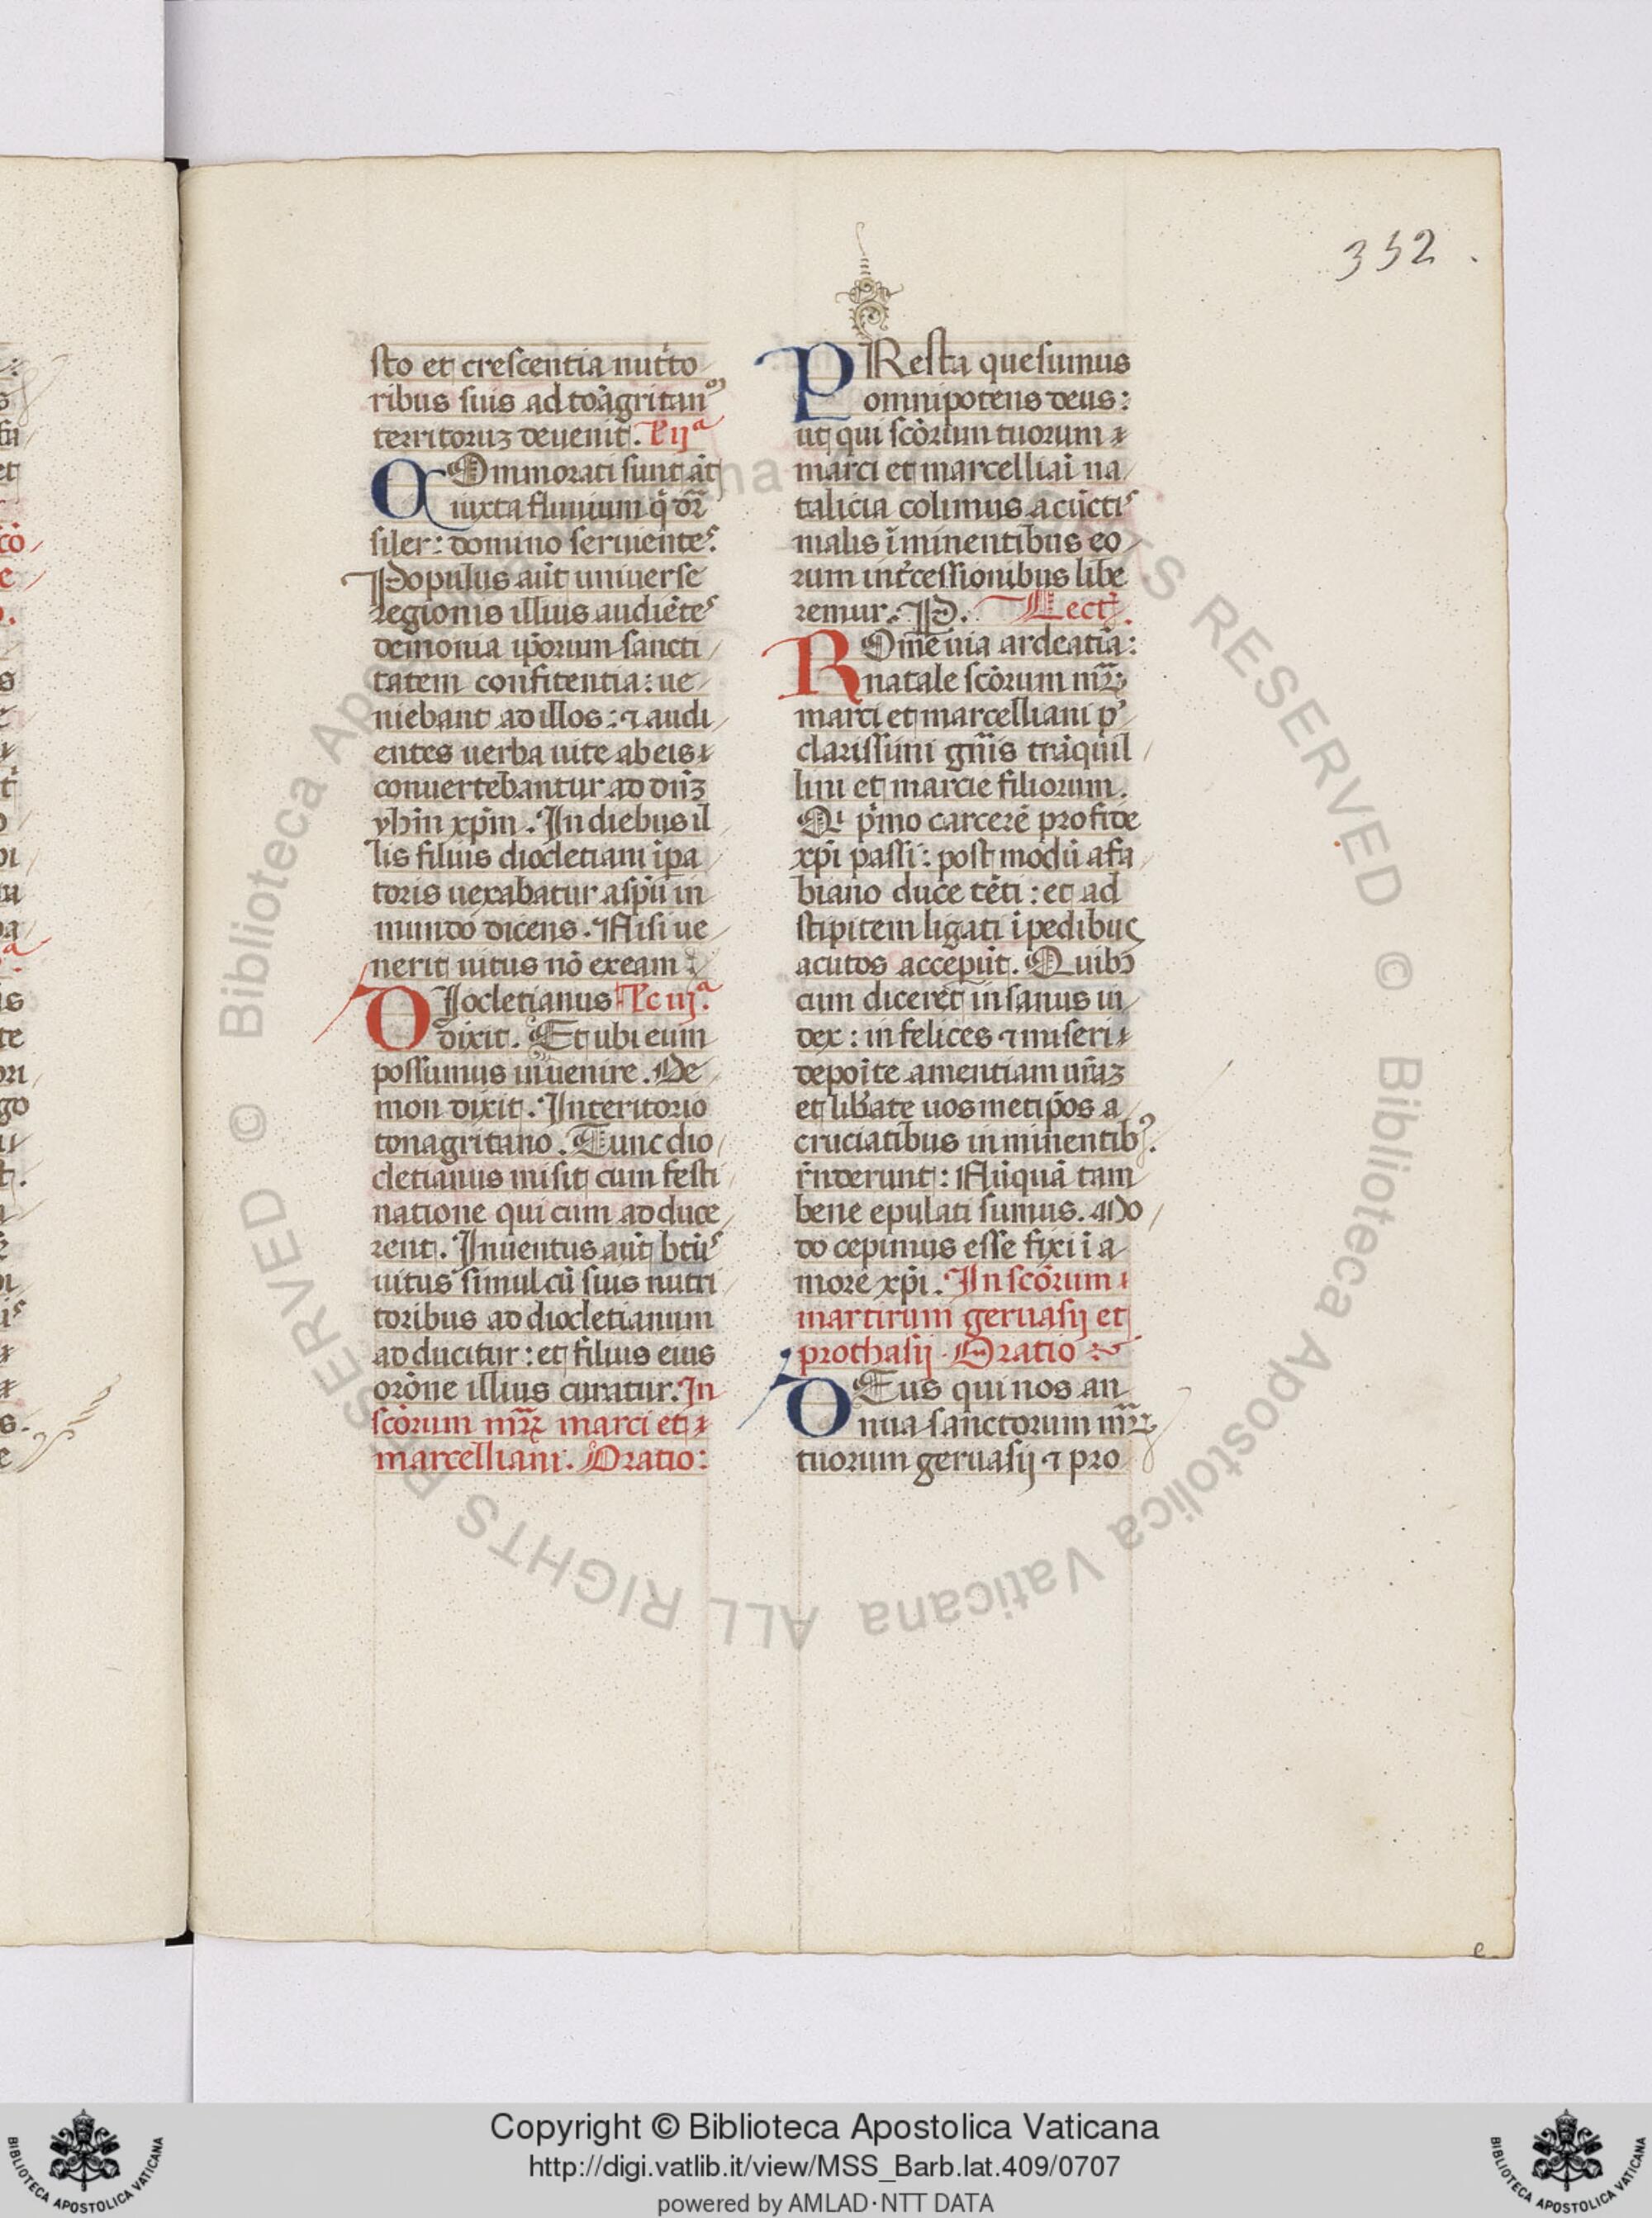 352.
sto et crescentia nut̃to
ribus suis ad tõagritan̄
territoriuȝ deuenit. L̃ ijª
COmmorati sunt aũt
iuxta fluuium q̃ dr̃
siler: domino seruientes.
Populus aũt uniuerse
regionis illius audiẽtes
demonia ip̃orum sancti
tatem confitentia: ue
niebant ad illos: ⁊ audi
entes uerba uite ab eis
conuertebantur ad dñȝ
yhm̃ xp̃m. In diebus il
lis filius diocletiani ip̃a
toris uexabatur a sp̃u in
mundo dicens. Nisi ue
nerit uitus nõ exeam:
DIocletianus Lc̃ iijª.
dixit. Et ubi eum
possumus inuenire. De
mon dixit. In teritorio
tonagritano. Tunc dio
cletianus misit cum festi
natione qui eum adduce
rent. Inuentus aũt btũs
uitus simul cũ suis nutri
toribus ad diocletianum
adducitur: et filius eius
orõne illius curatur. In
scõrum mr̃ꝝ marci et
marcelliani. Oratio:
PResta quesumus
omnipotens deus:
ut qui scõrum tuorum
marci et marcelliãi na
talicia colimus a cũctis
malis ĩminentibus eo
rum int̃cessionibus libe
remur. P. Lect̃.
ROme uia ardeatĩa:
natale scõrum mr̃ꝝ
marci et marcelliani p̃
clarissimi gñis trãquil
lini et marcie filiorum.
Qi p̃mo carcerẽ pro fide
xp̃i passi: post modũ a fa
biano duce tẽti: et ad
stipitem ligati ĩ pedibus
acutos accepũt. Quibꝫ
cum diceret insanus iu
dex: infelices ⁊ miseri
depoĩte amentiam ur̃aȝ
et lib̃ate uosmetip̃os a
cruciatibus inminentibꝫ.
r̃nderunt: Nũquã tam
bene epulati sumus. Mo
do cepimus esse fixi ĩ a
more xp̃i. In scõrum
martirum geruasij et
prothasij. Oratio
DEus qui nos an
nua sanctorum mr̃ꝝ
tuorum geruasij ⁊ pro
e
© Biblioteca Apostolica Vaticana ALL RIGHTS RESERVED © Biblioteca Apostolica Vaticana ALL RIGHTS RESERVED
Copyright © Biblioteca Apostolica Vaticana
http://digi.vatlib.it/view/MSS_Barb.lat.409/0707
powered by AMLAD·NTT DATA
BIBLIOTECA APOSTOLICA VATICANA
BIBLIOTECA APOSTOLICA VATICANA